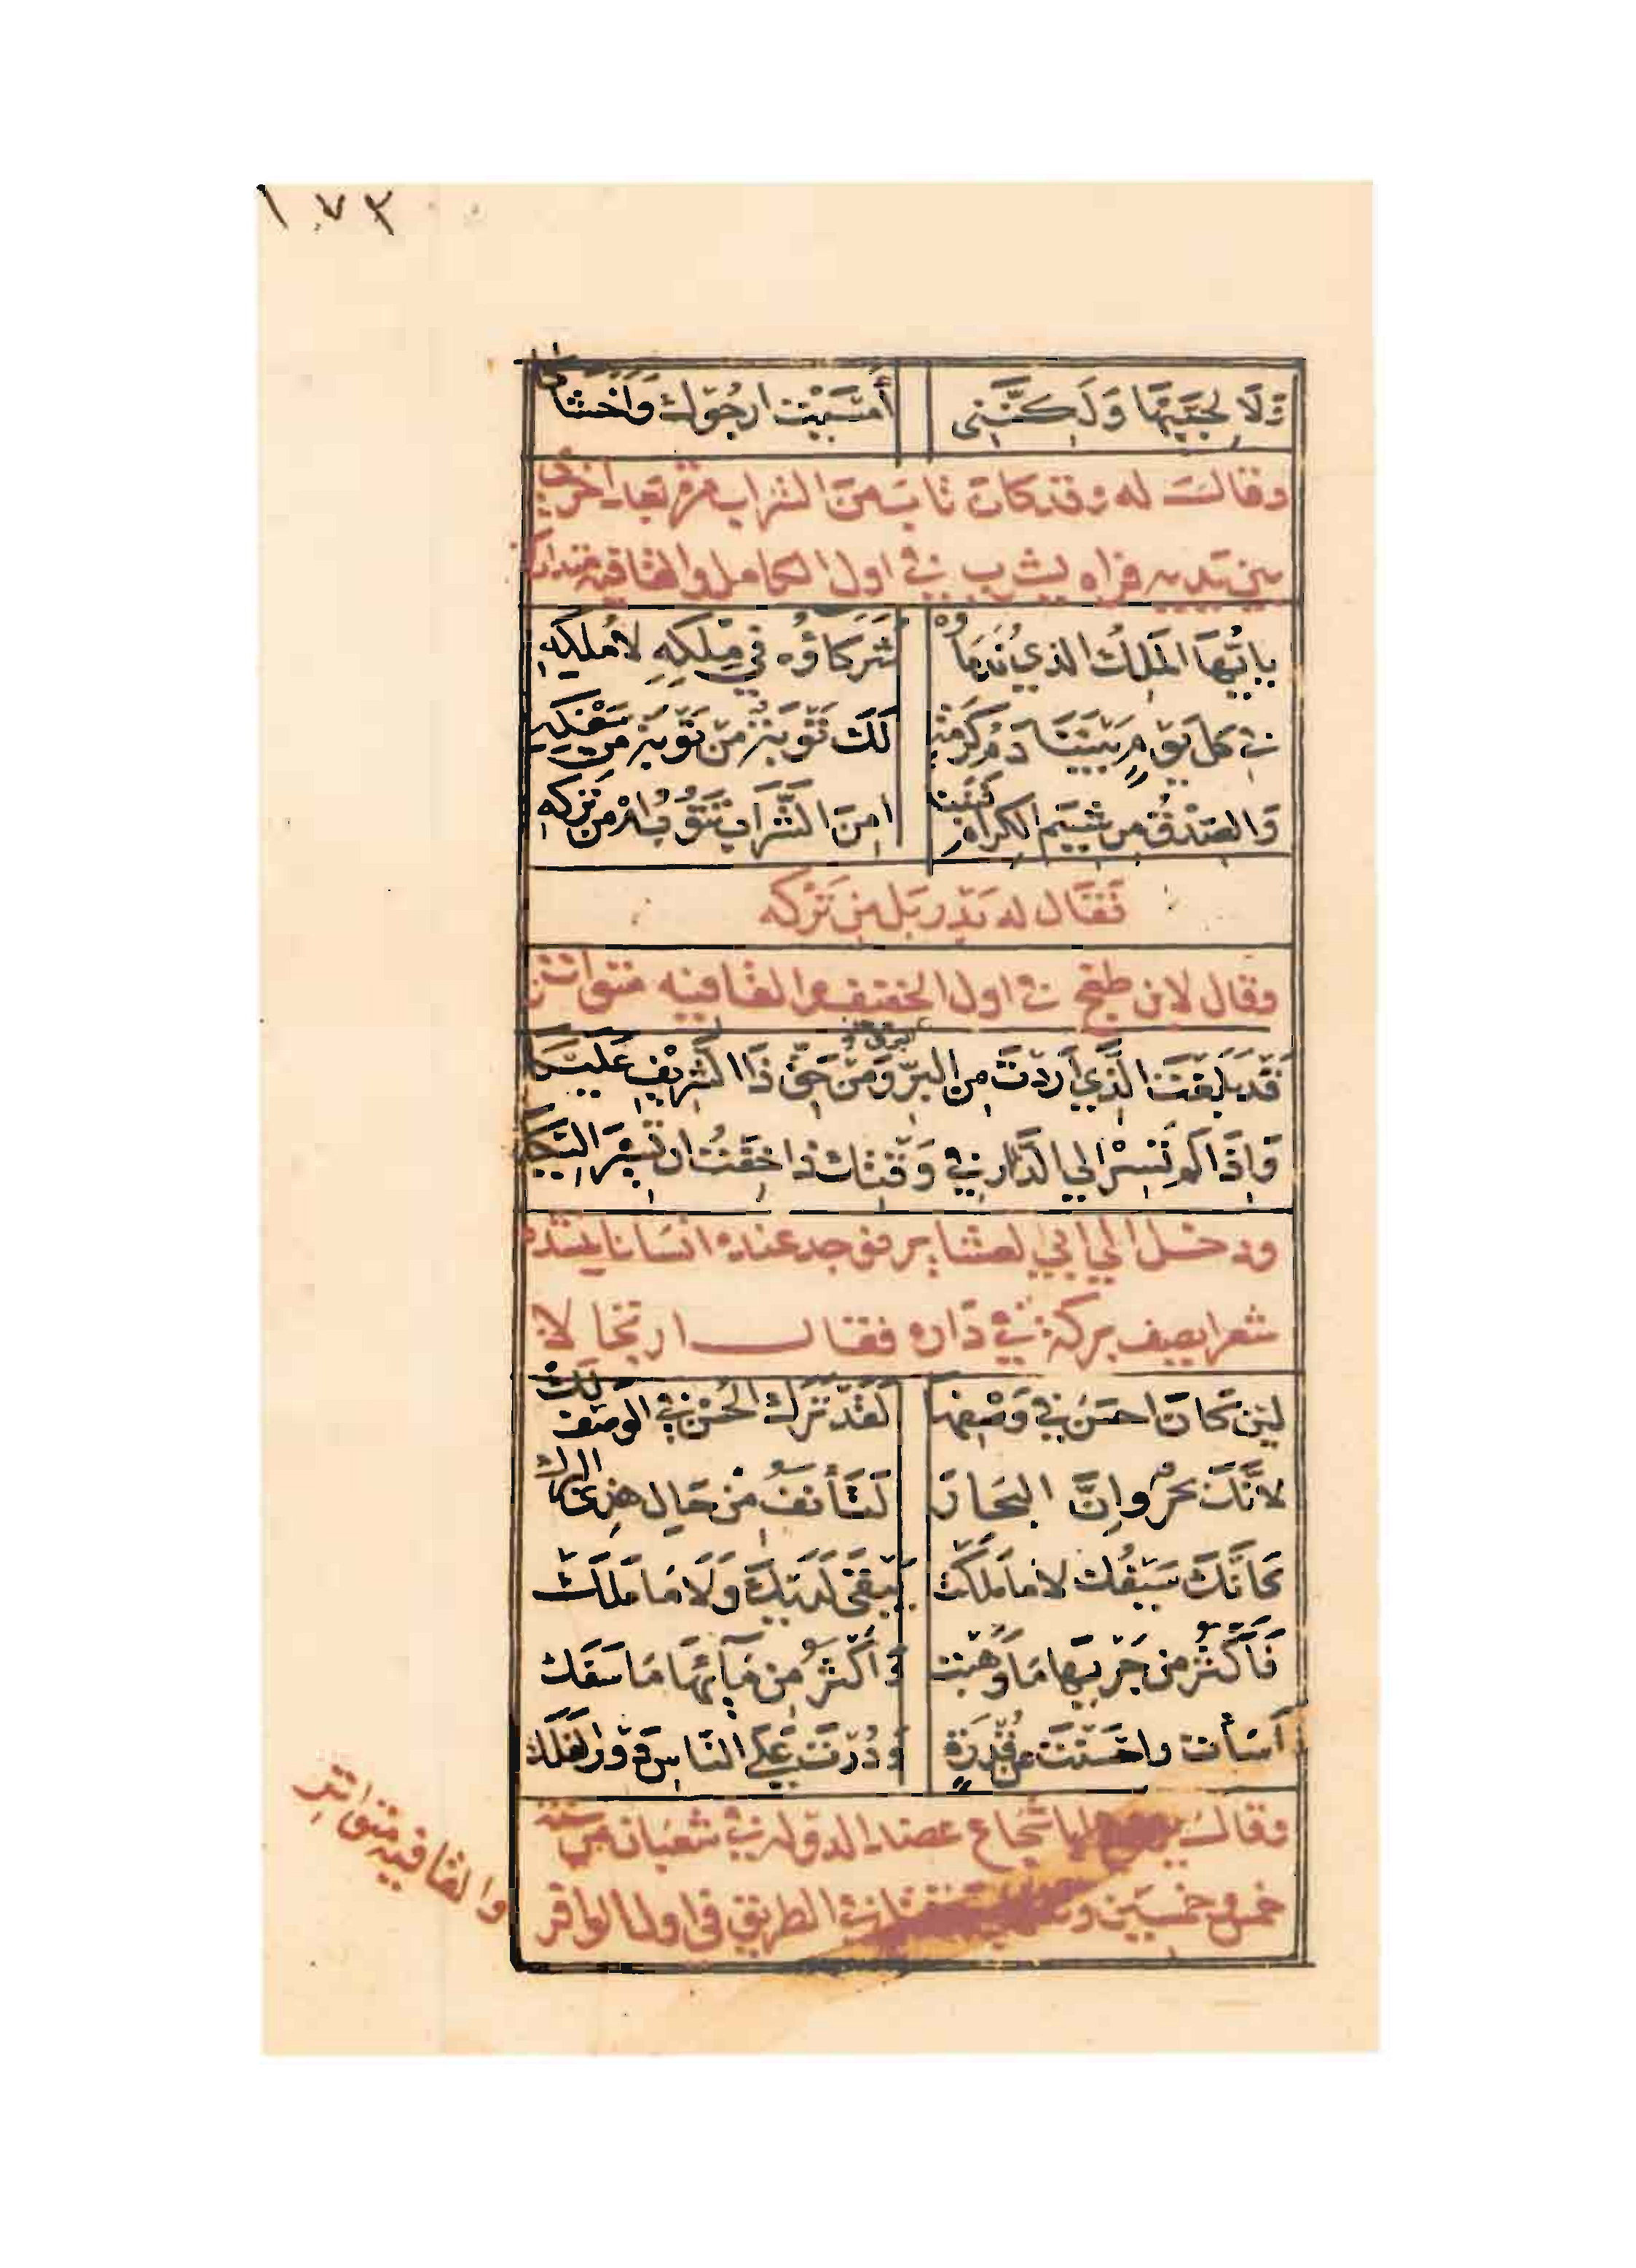 ١٧٣
وَلَا لِحُبِّيهَا وَلَكِنَّنِي أَمْسَيْتُ ارجُوكَ وَاخْشَاكَا
وقالَ له وقد كانَ تابَ منَ الشراب مرة بعد اخري
بين يديه فراه يشرب في اول الكامل والقافيه متدارك
يا ايُّهَا المَلِكُ الذي نُدَمَاؤُهُ شُرَكَاؤُه في مِلكِهِ لا مُلكِهِ
في كل يَوْمٍ بَيْنَنَا دَمُ كَرْمَةٍ لَكَ تَوْبَةٌ مِنْ تَوْبَةٍ مِن سَفْكِهِ
وَالصِّدْقُ مِن شِيَم الكِرَامِ فَنَبِّنَا امِنَ الشَّرَابِ تَتُوبُ امْ مِن تَرْكِهِ
فَقَال له بَدْر بَل مِن تَرْكه
وقال لابن طغج في اول الخفيف والقافيه متواتر
قَدْ بَلَغْتَ الَّذِي أرَدْتَ مِن البِرِّ وَمِنْ حَقِّ ذَا الشَّرِيْفِ عَلَيْكَا
وَاِذَا لَمْ تَسِرْ الي الدَّار في وَقْتِكَ ذا خِفْتُ ان تَسِيْرَ اليْكَا
ودخل الي ابي العشاير فوجد عنده انسانا ينشده
شعرا يصف بركة في دَاره فقال ارتجالا
لئِن كانَ احسَنَ في وَصْفِهَا لَقَدْ تَرَكَ الحُسْنَ في الوصف لَكْ
لانَّكَ بَحْرٌ وإنَّ البِحَارَ لَتَأنَفُ مِنْ حَالِ هَذِي البرَكْ
كانَّكَ سَيْفُكَ لا مَا مَلَكْتَ يَبْقَى لَدَيْكَ وَلَا مَا مَلَكْ
فَأكْثَرُ مِن جَرْيِهَا مَا وَهَبْتَ وَأكْثَرُ مِن مَآئِهَا مَا سَفَكْ
أسَأتَ واحْسَنْتَ عَنْ قُدْرَةٍ وَدُرْتَ عَلَى النَّاسِ دَوْرَ الفَلَكْ
وقالَ ابا شجاع عضد الدوله في شعبان من سنة
خمس وخمسين في الطريق في اول الوافر
والقافية متواتر